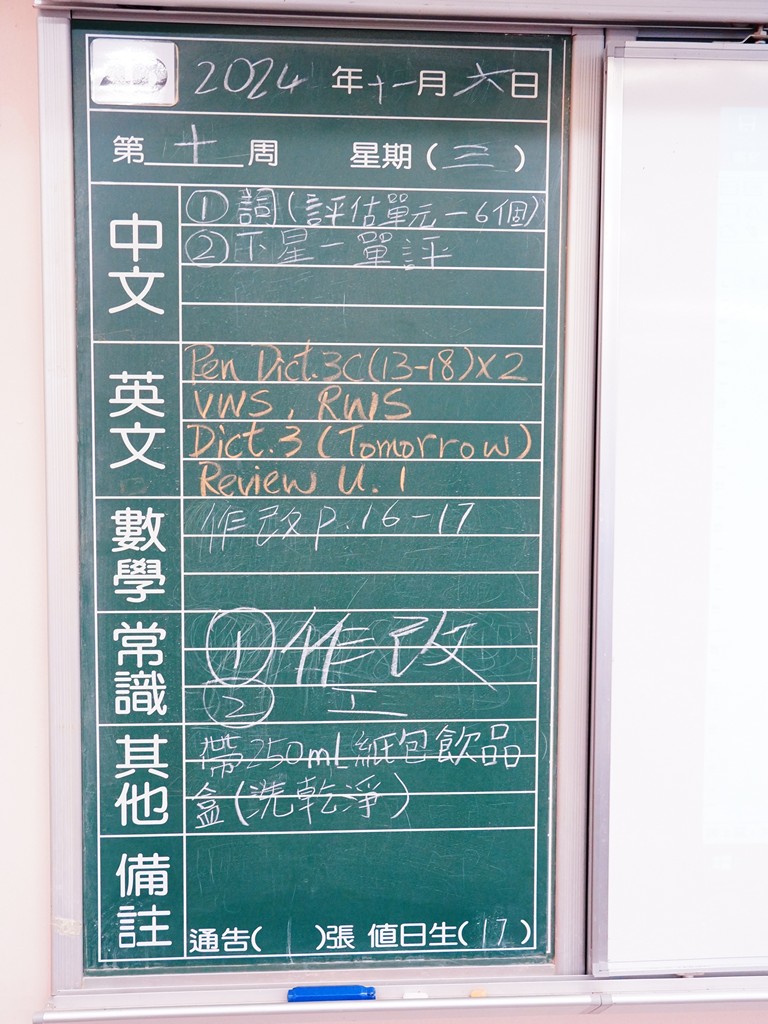 2024 年 十一 月 六 日
第 十 周 星期 ( 三 )
中文
① 詞 (評估單元一 6個)
② 下星一單評
英文
Pen Dict. 3C (13-18) x 2
VWS, RWS
Dict. 3 (Tomorrow)
Review U. 1
數學
作改 P. 16-17
常識
① 作改
② 工
其他
帶250mL紙包飲品
盒(洗乾淨)
備註
通告( 1 )張 值日生( 17 )